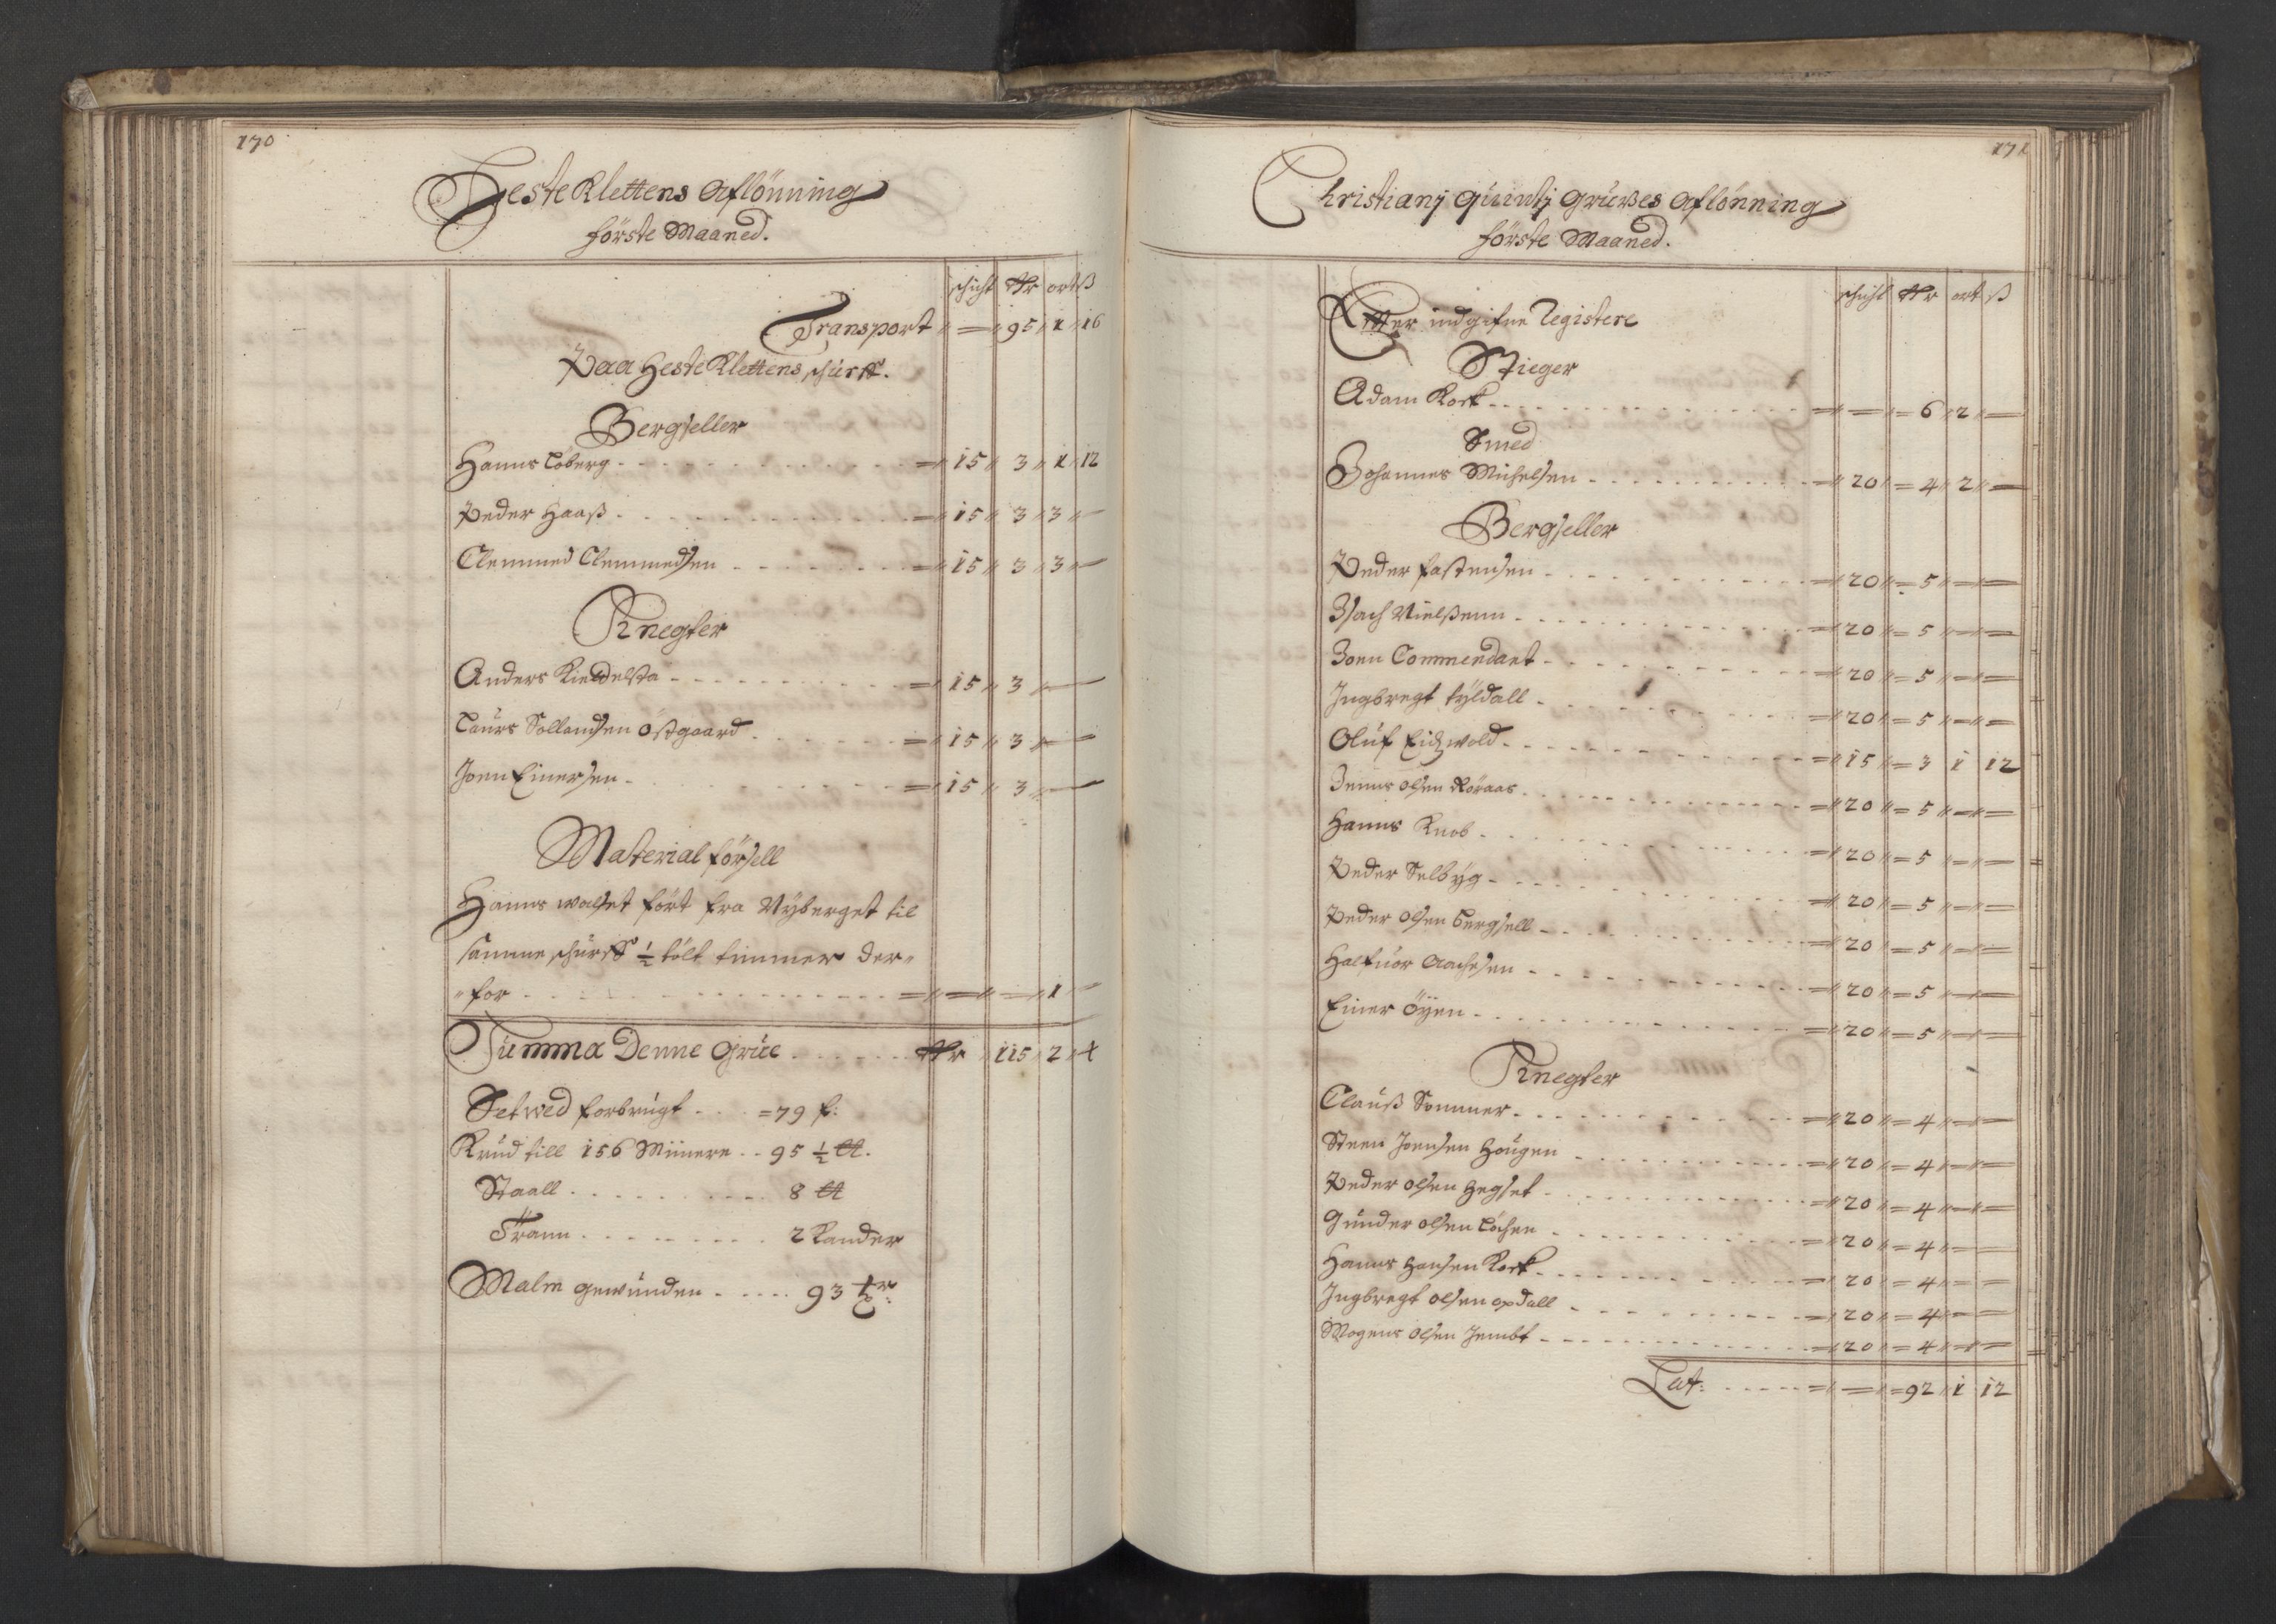 170
HesteKlettens Aflönning
förste Maaned.
schicht Rdr ort ß
Transport 95 1 16
Paa HesteKlettens schürff.
Bergseller
Hanns Löberg 15 3 1 12
Peder Haaß 15 3 3
Clemmed Clemmedsen 15 3 3
Knegter
Anders 15 3
Laurs östgaard 15 3
Joen Einersen 15 3
Material försell
Hanns fört fra Nÿberget til
samme schürff ½ tölt timmer der
for 1
Summa Denne Grüe Rdr 115 2 4
Setwed forbrugt 79 f:
Krud till 156 Minere 95 ½ ℔.
Staall 8 ℔
Trann 2 Kander
Malm gewunden 93
171
Christianj Quintj Gruwes Aflönning
förste Maaned.
schicht Rdr ort ß
Efter indgifne Registere
Stieger
Adam Kork 6 2
Smed
Johannes Michelsen 20 4 2
Bergseller
Peder fastensen 20 5
Isach Nielßenn 20 5
Joen Commendant 20 5
Ingbregt tÿldall 20 5
Oluf Eidzwold 15 3 1 12
Jenns olsen Röraas 20 5
Hanns Knob 20 5
Peder Selbÿg 20 5
Peder olsen bergsell 20 5
Halfuor Aachesen 20 5
Einer öÿen 20 5
Knegter
Clauß Sommer 20 4
Steen Joensen Hougen 20 4
Peder olsen Hegset 20 4
Gunder olsen Löchen 20 4
Hanns Hansen Kork 20 4
Ingbregt olsen opdall 20 4
Mogens olsen Jembt 20 4
Lat: 92 1 12